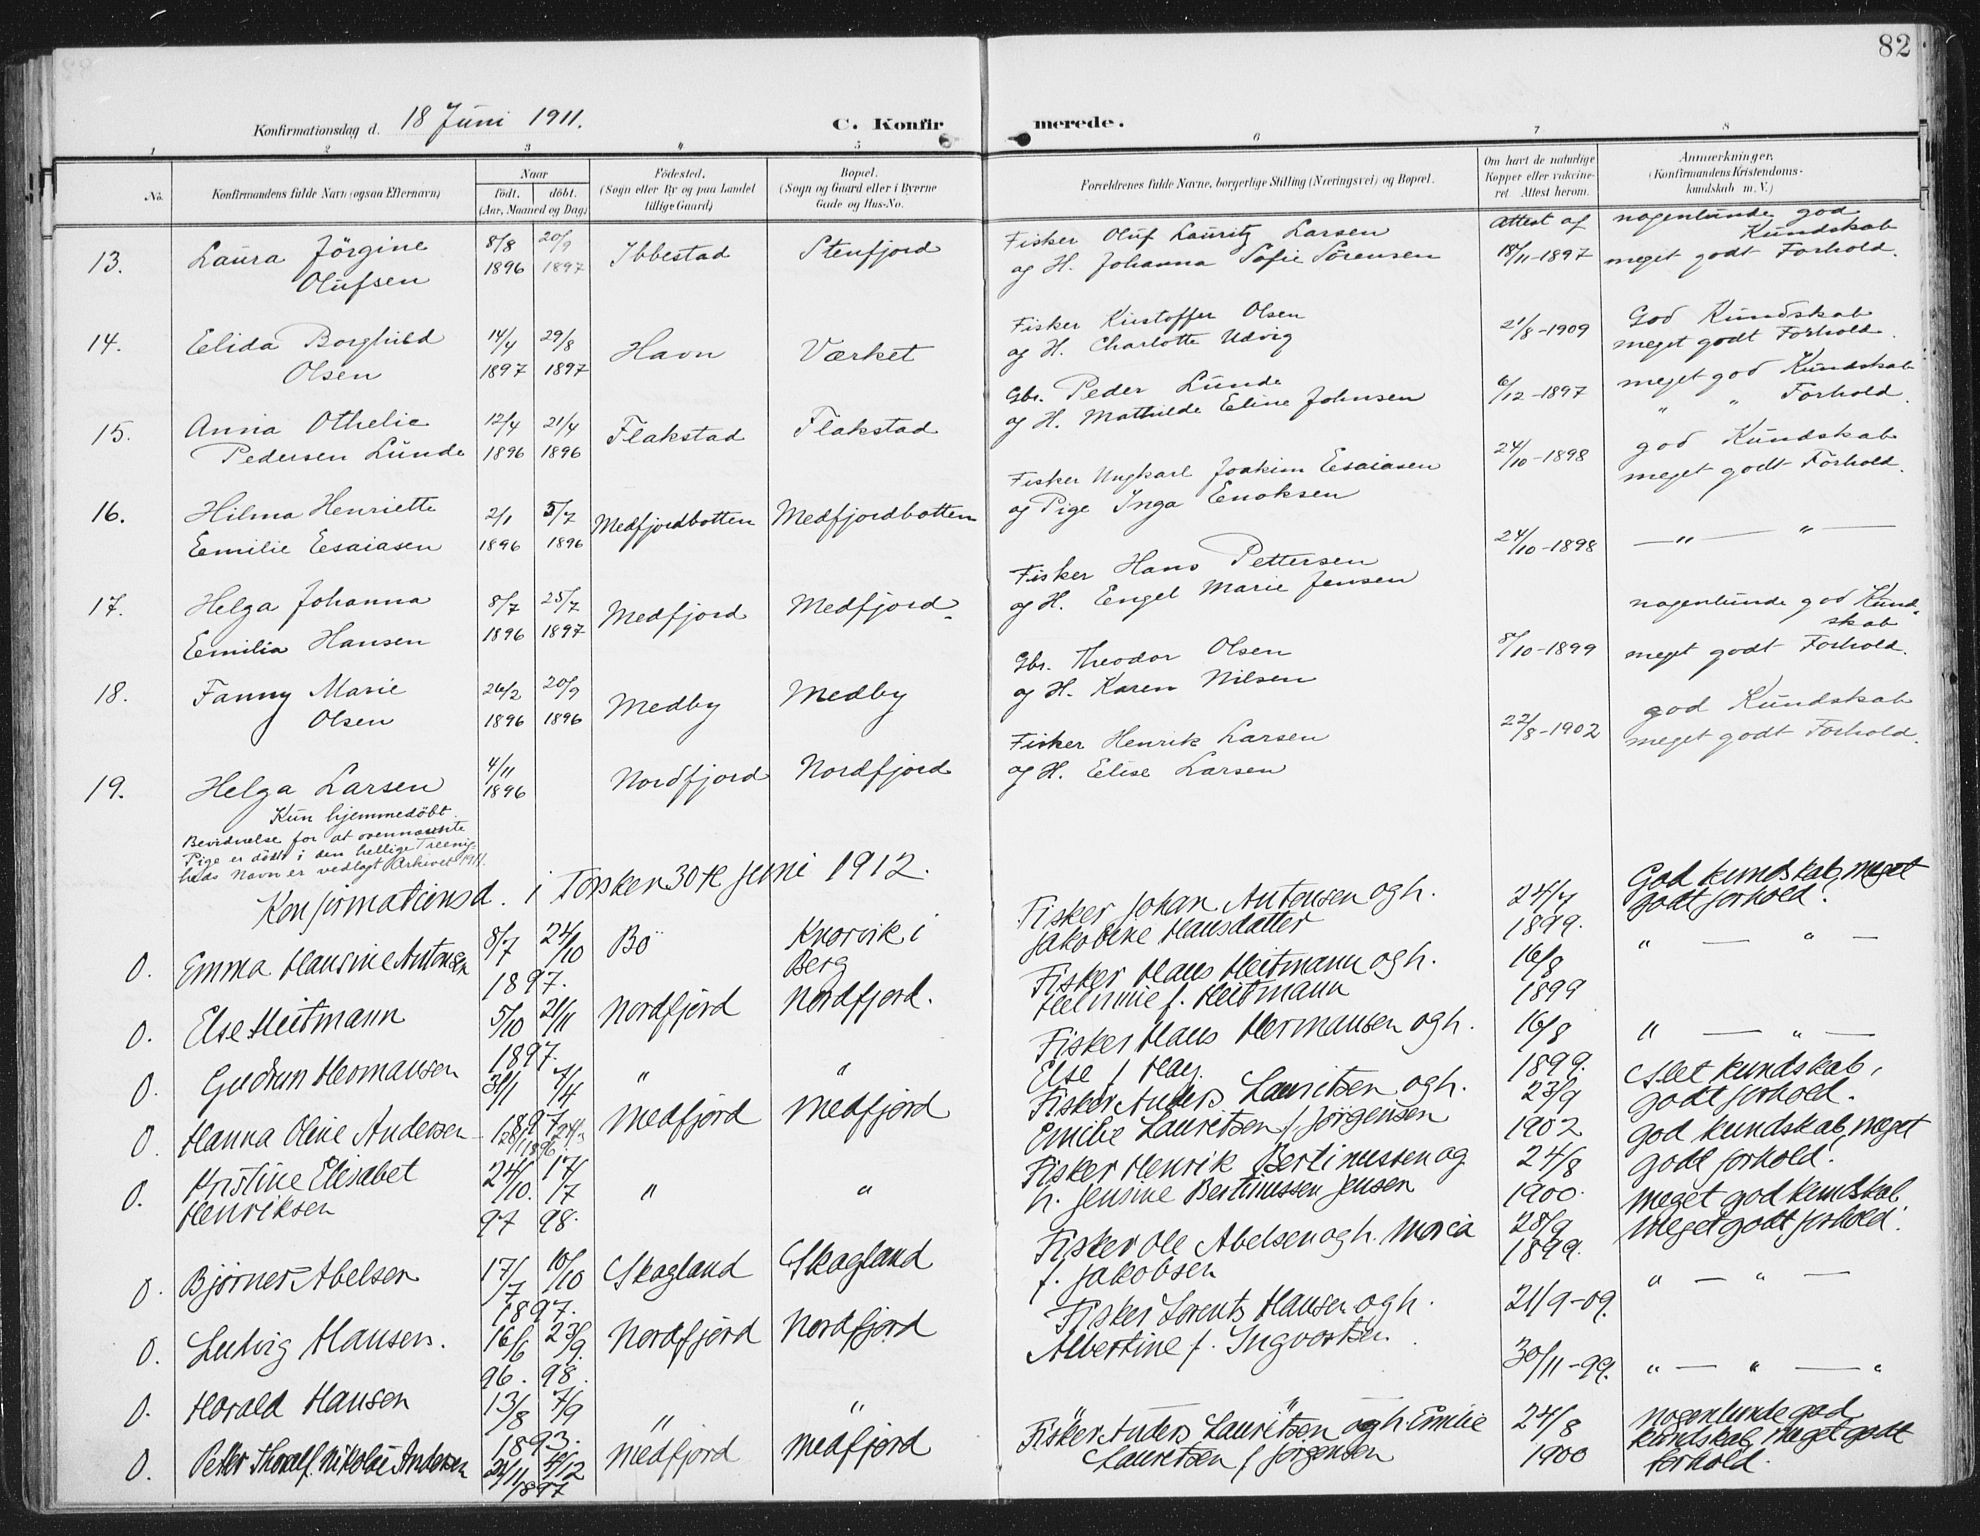 82
Konfirmationsdag d. 18 Juni 1911.
C. Konfirmerede.
1 2 3 4 5 6 7 8
No.
Konfirmandens fulde Navn (ogsaa Efternavn)
Naar
födt. döbt.
(Aar, Maaned og Dag)
Födested.
(Sogn eller By og paa Landet
tillige Gaard)
Bopæl.
(Sogn og Gaard eller i Byerne
Gade og Hus-No.
Forældrenes fulde Navne, borgerlige Stilling (Næringsvei) og Bopæl.
Om havt de naturlige
Kopper eller vaccine-
ret Attest herom.
Anmærkninger.
(Konfirmandens Kristendoms-
kundskab m. V.)
13. Laura Jörgine 8/8 20/9 Ibbestad Stenfjord Fisker Oluf Lauritz Larsen Attest af nogenlunde god
Kundskab
Olufsen 1896 1897 og H. Johanna Sofie Sörensen 18/11-1897 meget godt Forhold.
14. Elida Borghild 14/4 29/8 Havn Værket Fisker Kristoffer Olsen 21/8-1909 God Kundskab
Olsen 1897 1897 og H. Charlotte Udvig meget godt Forhold.
15. Anna Othelie 12/4 21/4 Flakstad Flakstad Gbr. Peder Lunde 6/12-1897 meget god Kundskab
Pedersen Lunde 1896 1896 og H. Mathilde Eline Johnsen " " Forhold.
16. Hilma Henriette 2/1 5/7 Medfjordbotten Medfjordbotten Fisker Ungkarl Joakim Esaiasen 24/10-1898 god Kundskab
Emilie Esaiasen 1896 1896 og Pige Inga Enoksen meget godt Forhold.
17. Helga Johanna 8/7 25/7 Medfjord Medfjord Fisker Hans Pettersen 24/10-1898 — " — " —
Emilia Hansen 1896 1897 og H. Engel Marie Jensen
18. Fanny Marie 26/2 20/9 Medby Medby Gbr. Theodor Olsen 8/10-1899 nogenlunde god Kund-
skab
Olsen 1896 1896 og H. Karen Nilsen meget godt Forhold.
19. Helga Larsen 4/11 1896 Nordfjord Nordfjord Fisker Henrik Larsen 22/8-1902 god Kundskab
og H. Elise Larsen meget godt Forhold.
Kun hjemmedöbt.
Bevidnelse for at ovennævnte
Pige er döbt i den hellige Treenig-
heds Navn er vedlagt Arkivet 1911.
Konfirmationsd. i Torsken 30te juni 1912.
0. Emma Hansine Antonsen 8/7 24/10 1897. Bö Knørvik i
Berg
Fisker Johan Antonsen og h.
Jakobine Hansdatter
24/7
1899.
God kundskab, meget
godt forhold.
0. Else Heitmann 5/10 21/11 1897. Nordfjord Nordfjord.
Fisker Hans Heitmann og h.
f. Heitmann
16/8
1899
" — " —
0. Gudrun Hermansen 31/1 7/4 1897 " "
Fisker Hans Hermansen og h.
Else f. Hay.
16/8
1899.
" — " —
0. Hanna Oline Andersen Medfjord Medfjord
Fisker Anders Lauritsen og h.
Emilie Lauritsen f. Jørgensen
23/9
1902
Slet kundskab,
godt forhold.
0. Kristine Elisabet
Henriksen
24/10. 17/7
97 98.
" "
Fisker Henrik Bertinussen og
h. Jensine Bertinussen Jensen
24/8
1900.
god kundskab, meget
godt forhold.
0. Bjørner Abelsen 17/7 10/10 1897. Skagland Skagland
Fisker Ole Abelsen og h. Maria
f. Jakobsen
28/9
1899.
meget god kundskab
meget godt forhold.
0. Ludvig Hansen. 16/6 23/9.
96. 98.
Nordfjord Nordfjord
Fisker Lorents Hansen og h.
Albertine f. Ingvortsen.
21/9-09.
" — " —
0. Harald Hansen 13/8 7/9 1893. " "
" — "
30/11-99.
" — " — "
0. Petter Thoralf Nikolai Andersen 24/11 4/12 1897 Medfjord Medfjord
Fisker Anders Lauritsen og h. Emilie
Lauritsen f. Jørgensen
24/8
1900
nogenlunde god
kundskab, meget godt
forhold.